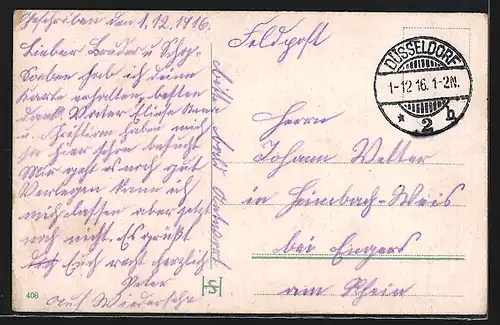 Geschrieben den 1.12.1916.
Lieber Bruder u. Schw.
Soeben hab ich deine
Karte erhalten, besten
Dank. Vater Eliese Anna
u. Christina haben mich
ja hier schon besucht
Mir geht es noch gut
Verlegen kann ich
mich lassen aber jetzt
noch nicht. Es grüßt
Euch recht herzlich
Peter
Auf Wiedersehn
bitte bald Antwort
408
Feldpost
DÜSSELDORF
1-12 16. 1-2N.
* 2 b
Herrn
Johann Vetter
in Heimbach-Weis
bei Engers
am Rhein